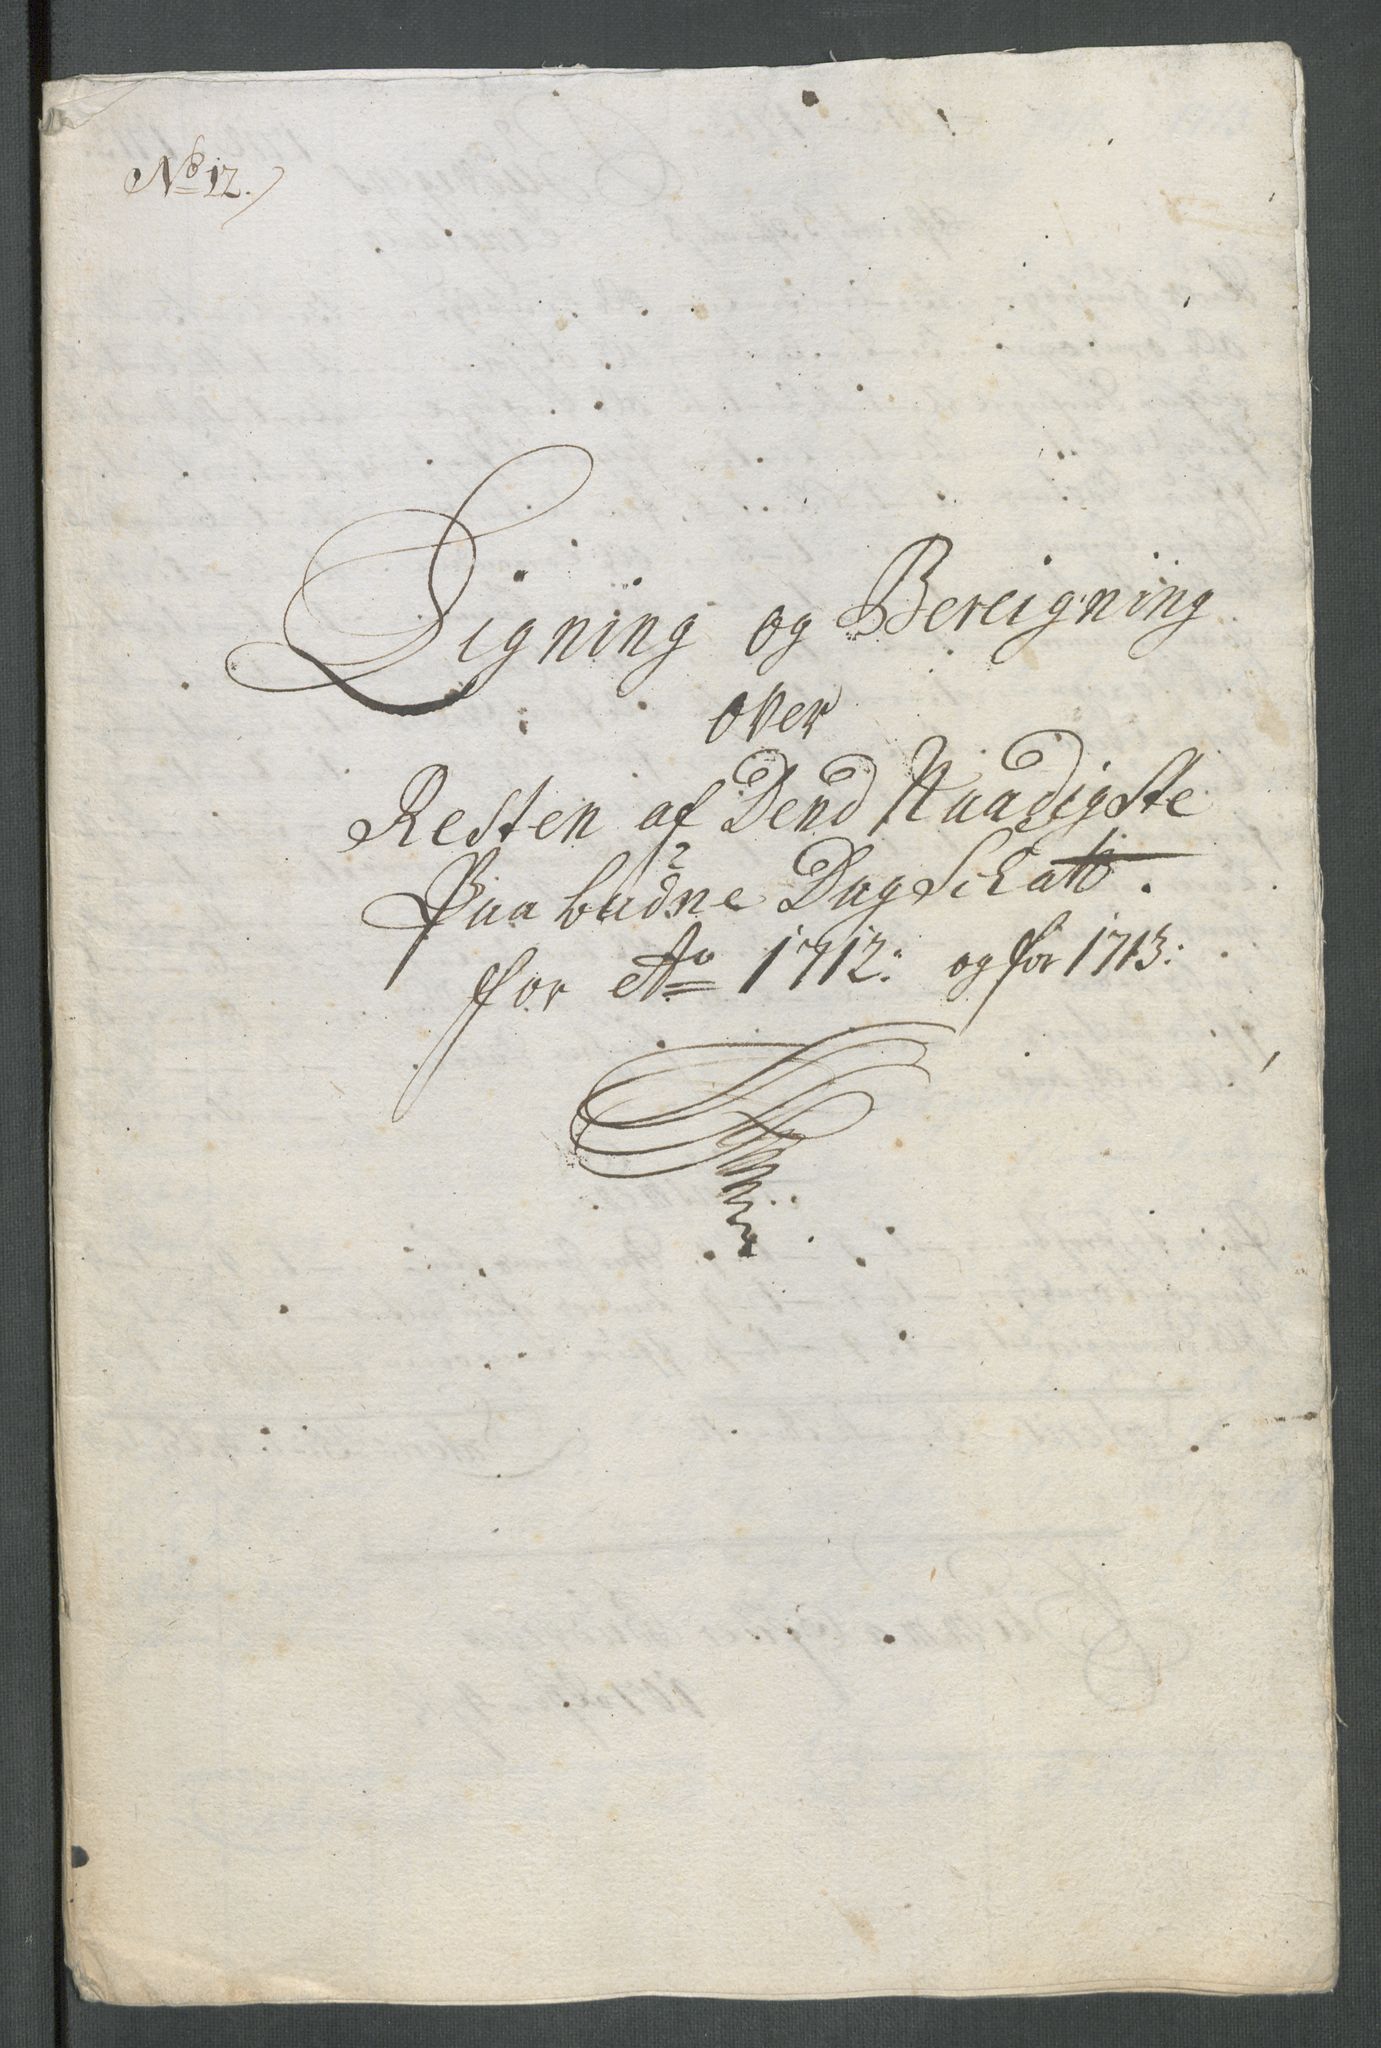 No 12.
Ligning og Bereigning
over
Resten af Dend Naadigste
Paabudne Dag Skatt.
for Ao 1712: og for 1713: